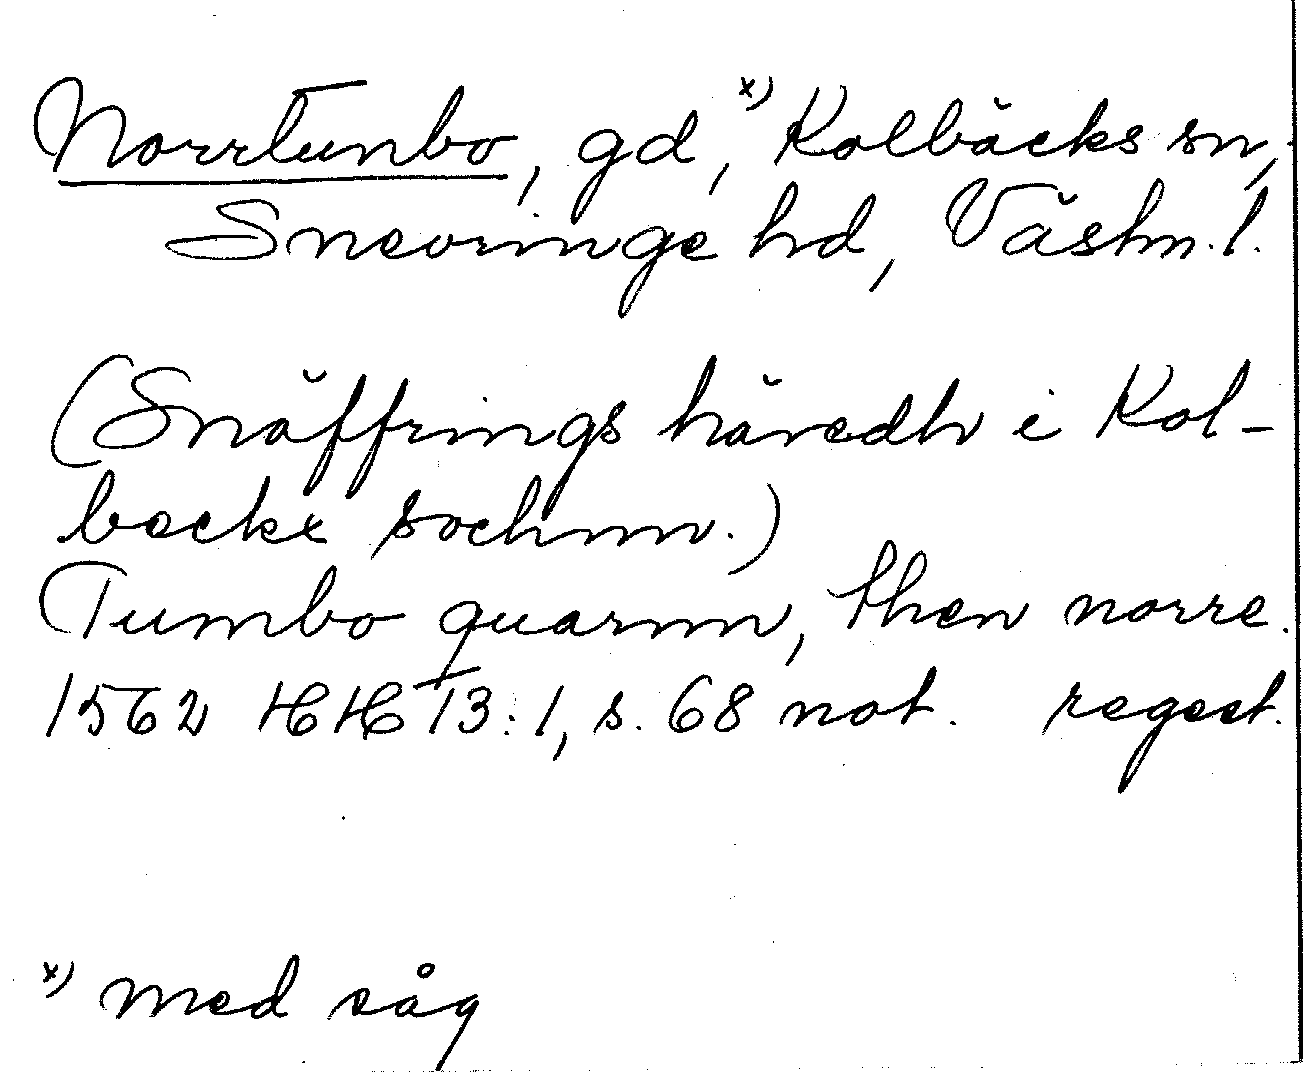 Norrtunbo, gd, x) Kolbäcks sn,
Snevringe hd, Västm. l.
(Snäffrings häredh i Kol-
beckx sochnn.)
Tumbo quarnn, then norre.
1562 HH 13:1, s. 68 not. regest.
x) med såg